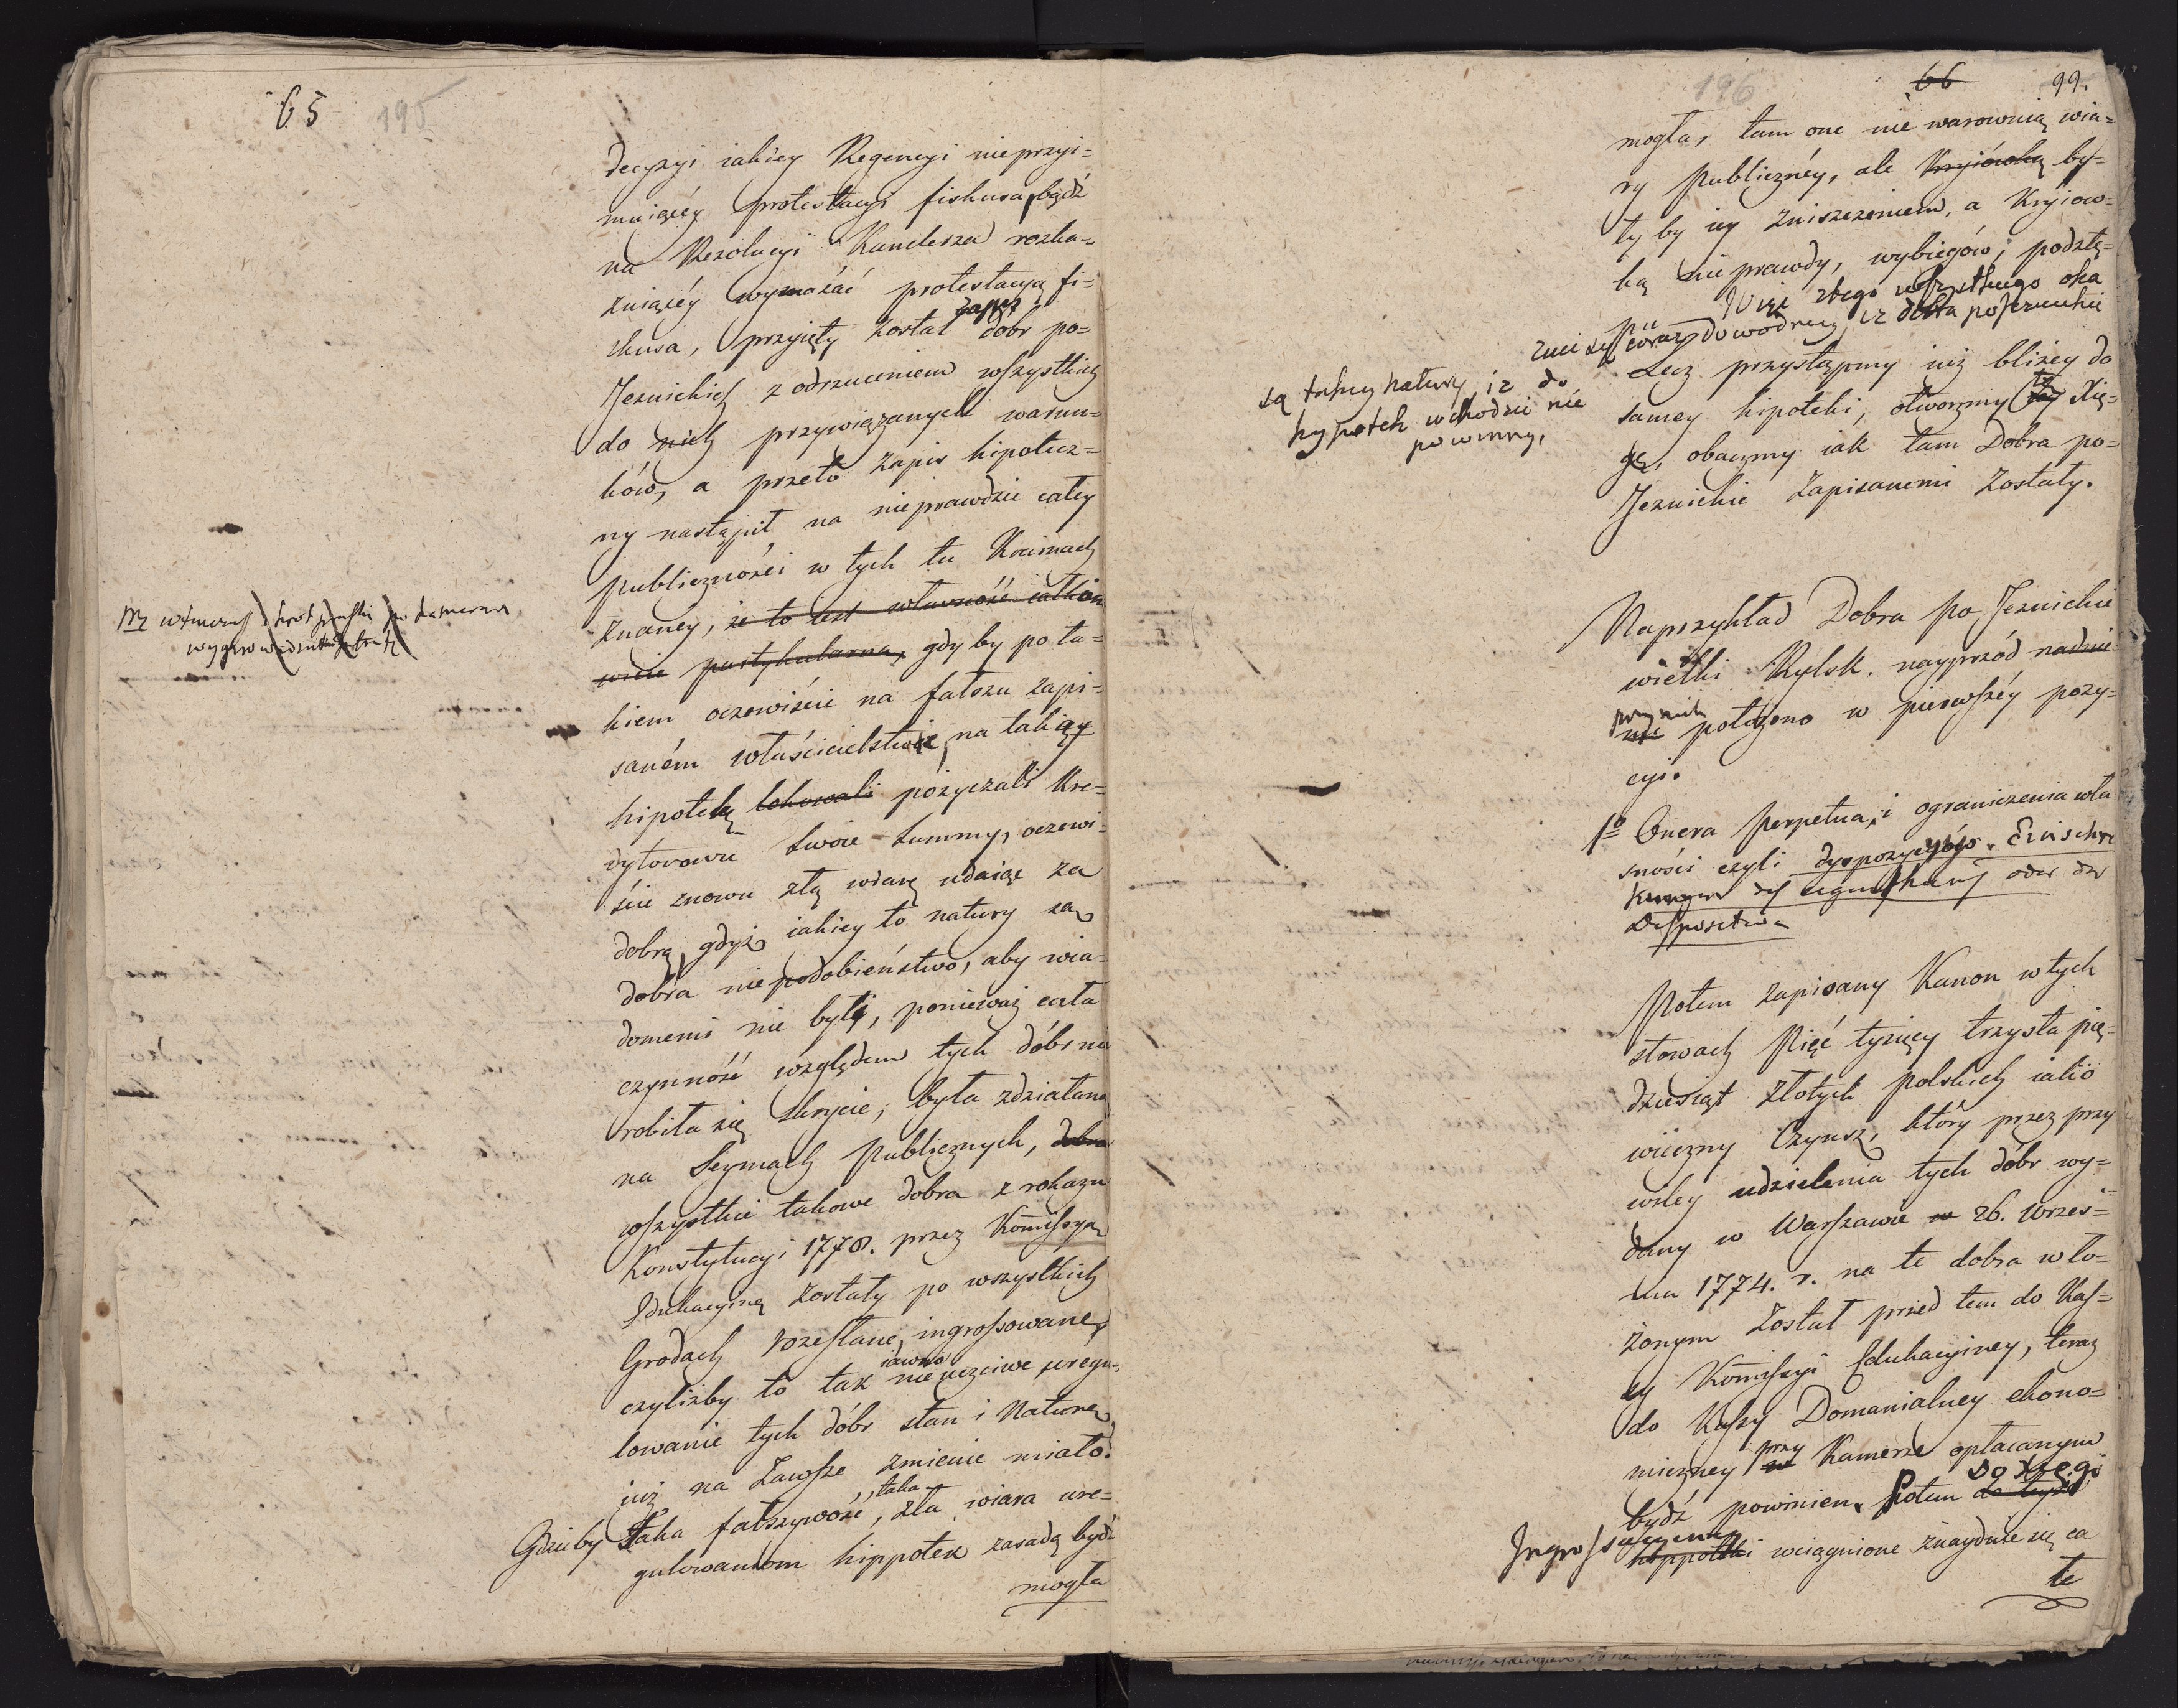 65 195
decyzyi iakiey Regencyi nieprzyi=
muiącéy protestacyi fiskusa, bądź
na Rezolucyi Kanclerza rozka=
zuiącéy wymazać protestacyą fi=
skusa, przyięty został zapis dóbr po=
Jezuickich z odrzuceniem wszystkich
do nich przywiązanych warun=
ków, a przeto zapis hipotecz=
ny nastąpił na nieprawdzie całey
publiczności w tych tu Krainach
znaney, że to iest własność całkiem
partykularna, gdy by po ta=
kiem oczewiście na fałszu zapi=
saném właścicielstwie, na takiey
hipotekę lokowali pożyczali kre=
dytorowie swoie summy, oczewi=
ście znowu złą wiarę udaiąc za
dobrą, gdyż iakiey to natury są
dobra niepodobieństwo, aby wia=
domemi nie były, ponieważ cała
czynność względem tych dóbr nie
robiła się skrycie, była zdziałana
na Seymach publicznych, dobra
wszystkie takowe dobra z rokazu
Konstytucyi 1778. przez Komissyą
Edukacyiną zostały po wszystkich
Grodach rozesłane, ingrossowane,
czyliżby to tak iawno nieuczciwe uregu=
lowanie tych dóbr stan i Naturę
iuż na zawsze zmienić miało.
Gdzieby Taka fałszywość, taka zła wiara ure=
gulowaniom hippotek zasadą bydź
mogła
196 66 99.
mogła, tam one nie warownią wia=
ry publiczney, ale Kryiówką by=
ły by iey zniszczeniem, a Kryiow=
ką nieprawdy, wybiegów, podstę=
pu Więc z tego wszystkiego oka
zuie się coraz dowodniey, iż dobra pojezuickie
są takiey natury, iż do
hypotek wchodzić nie
powinny,
Lecz przystąpmy iuż bliżey do
samey hipoteki, otworzmy tę Xię=
gę, obaczmy iak tam Dobra po=
Jezuickie zapisanemi zostały.
Naprzykład Dobra po Jezuickie
wielki Rylsk. nayprzód
położono w pierwszéy pozy=
cyi.
1o Onera perpetua, i ograniczenia wła
sności czyli dyspozycyiów. Einschrä
Potem zapisany Kanon w tych
słowach Pięć tysięcy trzysta pię=
dziesiąt złotych polskich iako
wieczny Czynsz, który przez przy
wiley udzielenia tych dóbr wy=
dany w Warszawie w 26. Wrześ=
nia 1774. r. na te dobra wło=
żonym został przed tem do Kas=
sy Komissyi Edukacyiney, teraz
do Kassy Domanialney ekono=
miczney w przy Kamerze opłacanym
bydź powinien. Potem do Xięgi
hippoteki wciągnione znayduie się ca
te